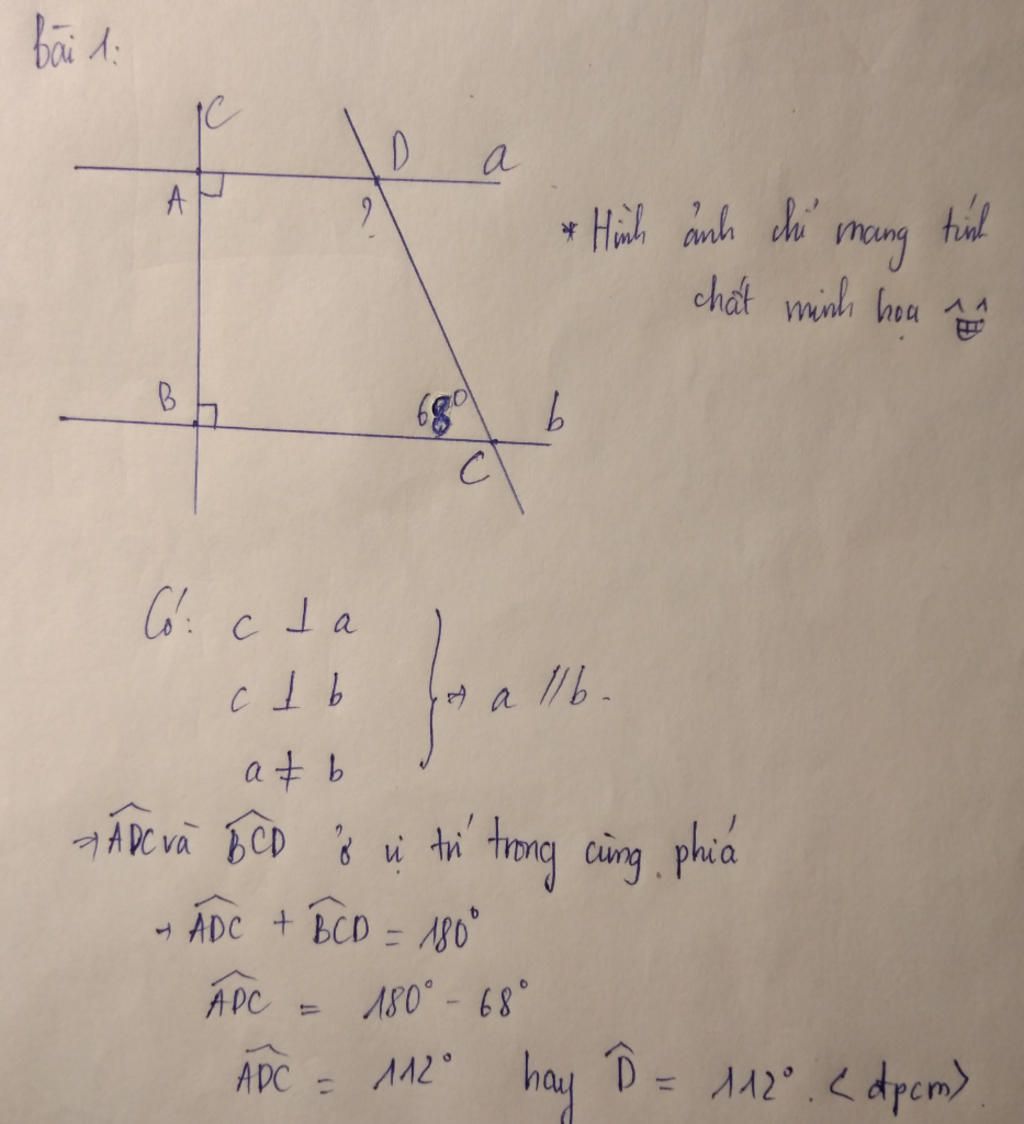 bài 1:
C
D
a
A
?
* Hình ảnh chỉ mang tính
chất minh họa ^^
B
68°
b
C
Có: c ⊥ a
c ⊥ b
a ≠ b
} → a // b.
⇒ ADC và BCD ở vị trí trong cùng phiá
→ ADC + BCD = 180°
ADC = 180° - 68°
ADC = 112° hay D̂ = 112°. <đpcm>